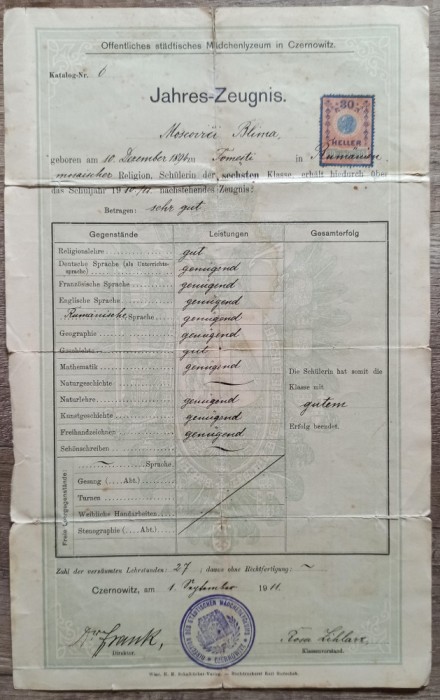 Öffentliches städtisches Mädchenlyzeum in Czernowitz.
Katalog-Nr. 6
Jahres-Zeugnis.
30
HELLER
Blima
geboren am 10. Dezember in Tomesti in Rumänien
mosaischer Religion, Schülerin der sechsten Klasse, erhält hiedurch über
das Schuljahr 1910/11 nachstehendes Zeugnis:
Betragen: sehr gut
Gegenstände Leistungen Gesamterfolg
Religionslehre gut
Deutsche Sprache (als Unterrichtssprache) genügend
Französische Sprache genügend
Englische Sprache genügend
Rumänische Sprache genügend
Geographie genügend
Geschichte gut
Mathematik genügend
Naturgeschichte ~
Naturlehre genügend
Kunstgeschichte genügend
Freihandzeichnen genügend
Schönschreiben ~
Die Schülerin hat somit die
Klasse mit
gutem
Erfolg beendet.
Freie Lehrgegenstände:
~ Sprache
Gesang ( Abt.)
Turnen
Weibliche Handarbeiten
Stenographie ( Abt.)
Zahl der versäumten Lehrstunden: 27 ; davon ohne Rechtfertigung: ~
Czernowitz, am 1. September 1911.
Dr Frank,
Direktor.
Rosa
Klassenvorstand.